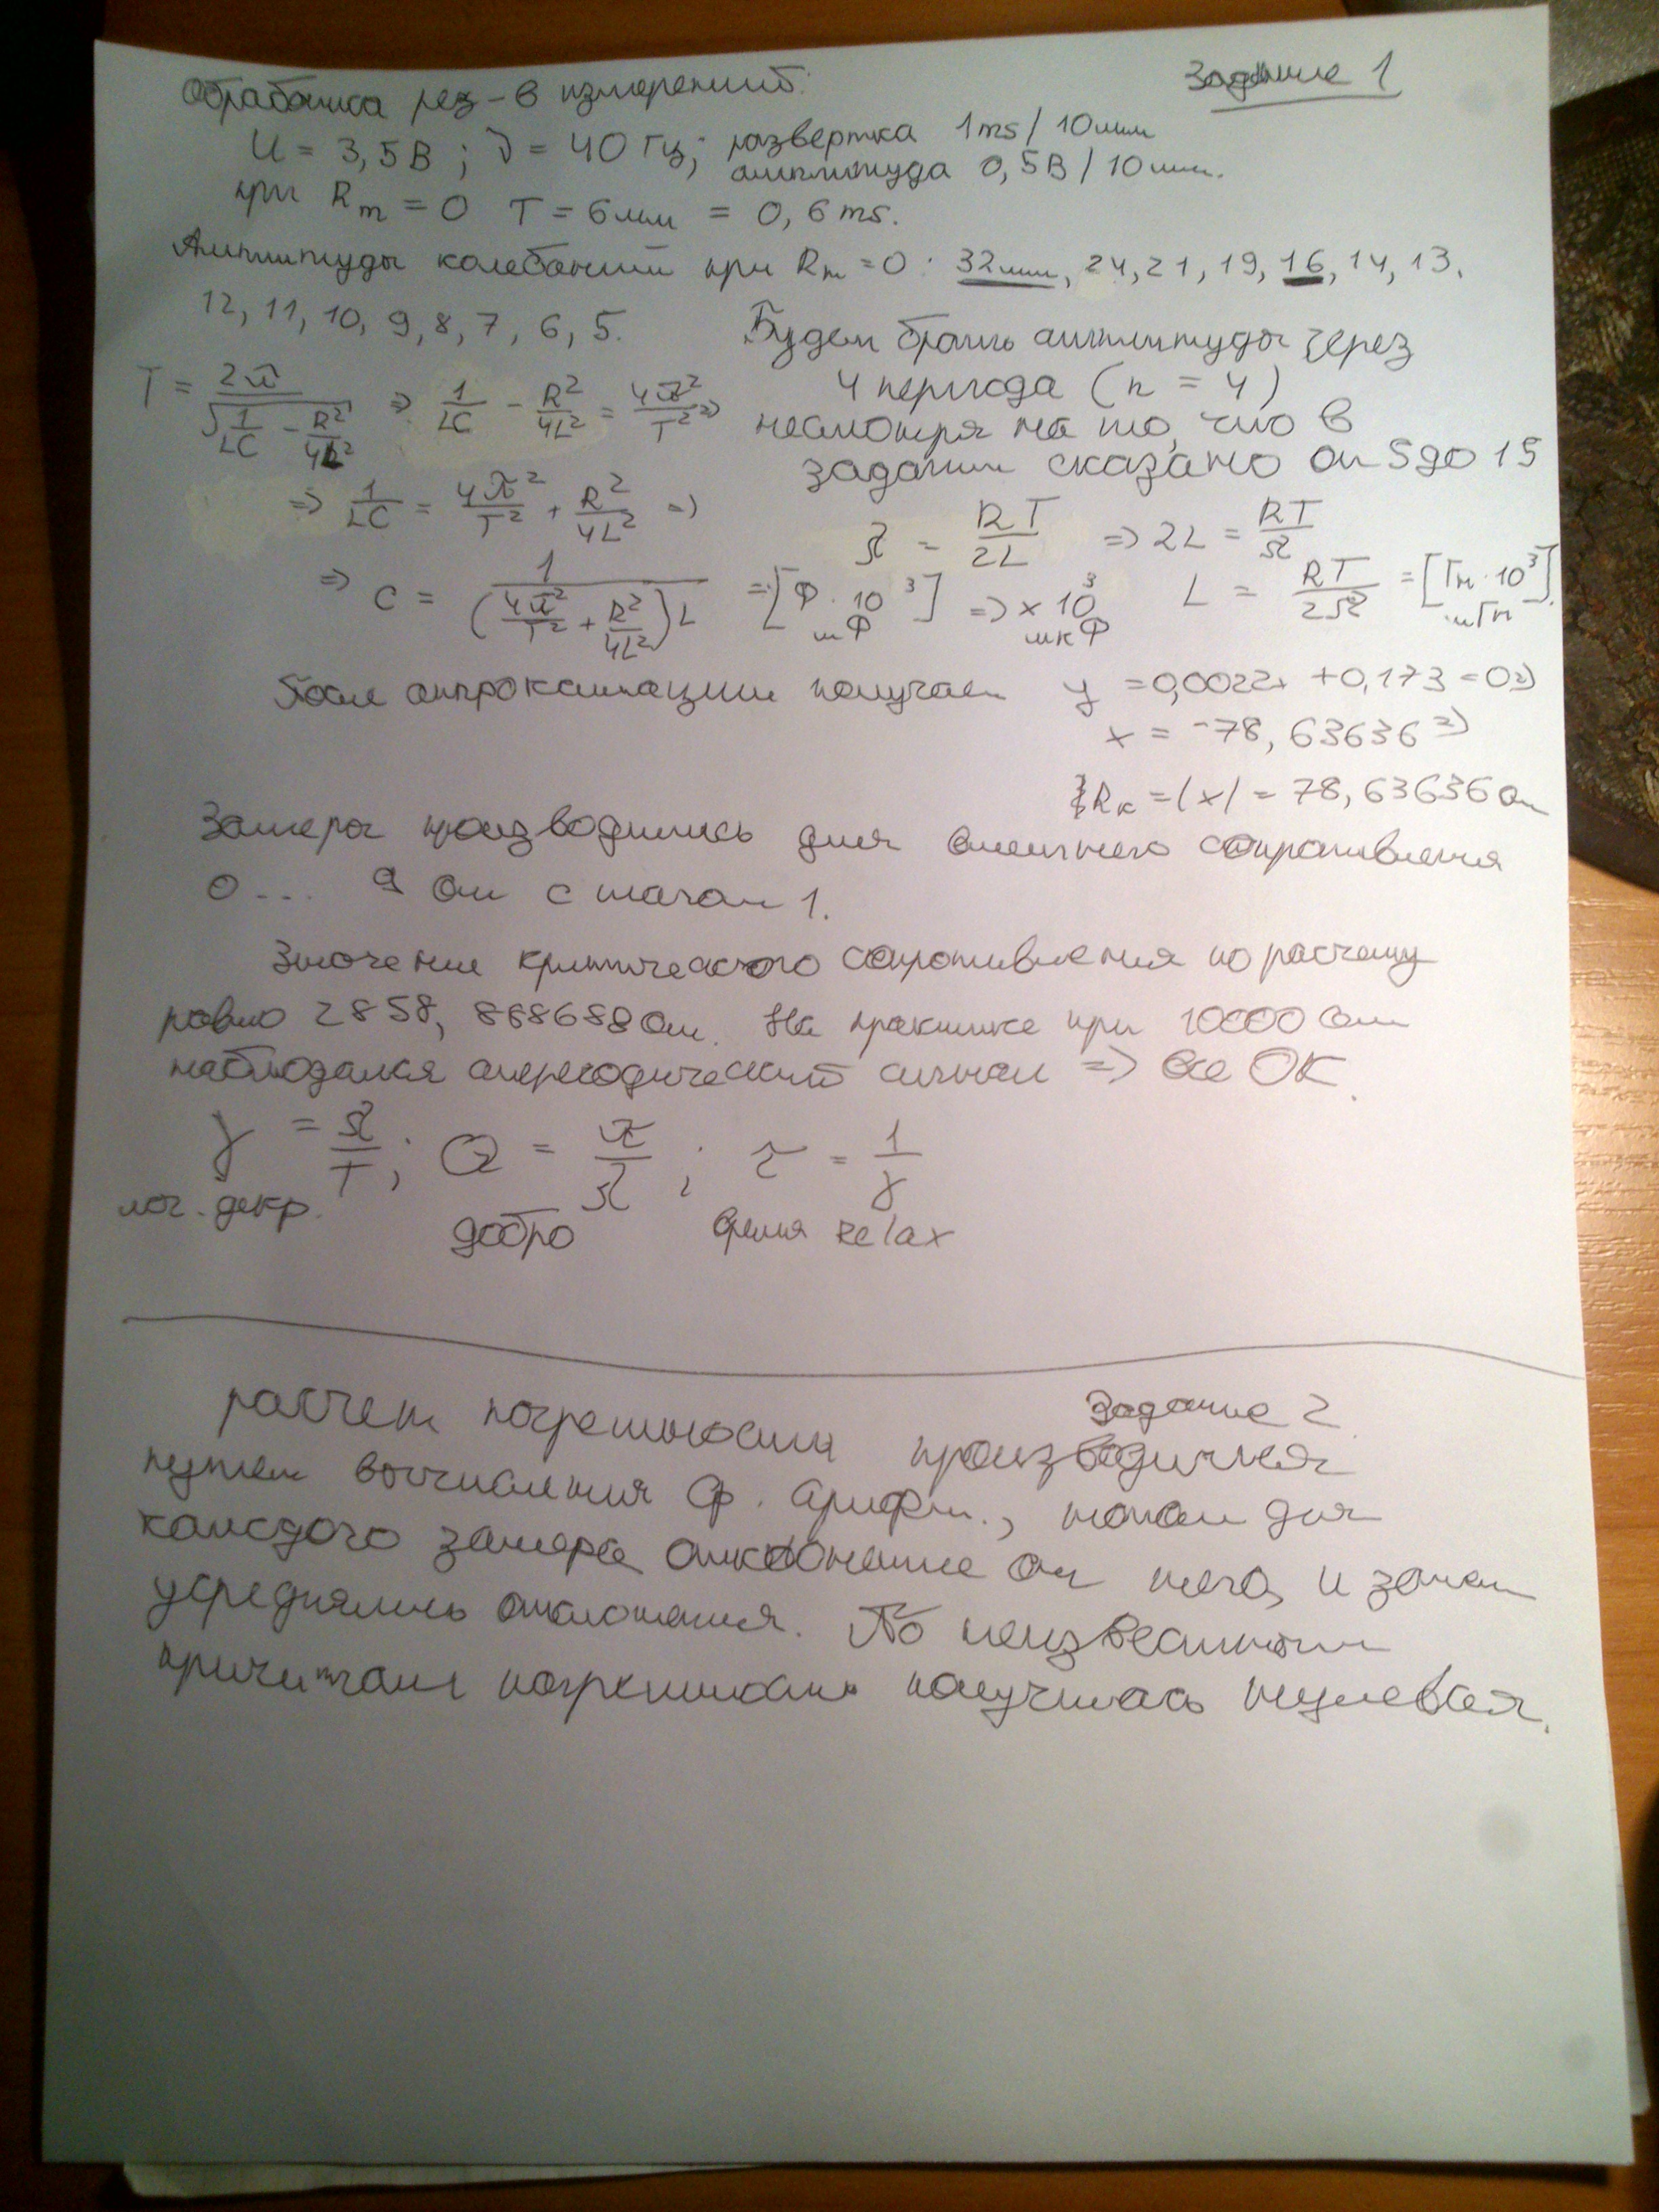 Задание 1
Обработка рез-в измерений:
U = 3,5В ; ν = 40 Гц; развертка 1ms/10мм
амплитуда 0,5В/10мм.
при Rm = 0 T = 6мм = 0,6 ms.
Амплитуды колебаний при Rm = 0 : 32мм, 24, 21, 19, 16, 14, 13,
12, 11, 10, 9, 8, 7, 6, 5.
Будем брать амплитуды через
4 периода (n = 4)
несмотря на то, что в
задании сказано от 5 до 15
T = 2π / √(1/LC − R²/4L²) => 1/LC − R²/4L² = 4π²/T² =>
=> 1/LC = 4π²/T² + R²/4L² =>
λ = RT/2L => 2L = RT/λ
=> C = 1/((4π²/T² + R²/4L²)L) = [Ф · 10³] => × 10³
мФ мкФ
L = RT/2λ = [Гн · 10³]
мГн
После аппроксимации получаем y = 0,0022x + 0,173 = 0 =>
x = -78,63636 =>
Rк = |x| = 78,63636 Ом
Замеры производились для магазинного сопротивления
0 ... 9 Ом с шагом 1.
Значение критического сопротивления по расчету
равно 2858, 868688 Ом. На практике при 10000 Ом
наблюдался апериодический сигнал => все ОК.
γ = λ/T ; Q = π/λ ; τ = 1/γ
лог. декр. добро время relax
Задание 2
расчет погрешности производился
путем вычисления ср. арифм., потом для
каждого замера отклонение от него, и затем
усреднялись отклонения. По неизвестным
причинам погрешность получилась нулевая.